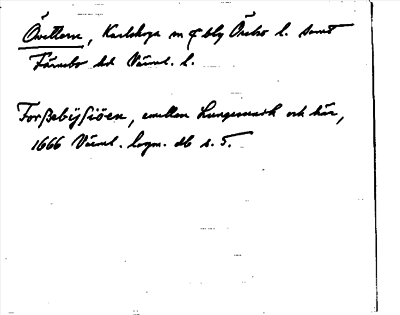 Övettern, Karlskoga m & blg Örebro l. samt
Färnebo hd Värml. l.
Forßebÿsiöen, emellan Lungsmark och här,
1666 Värml. lagm. db s. 5.